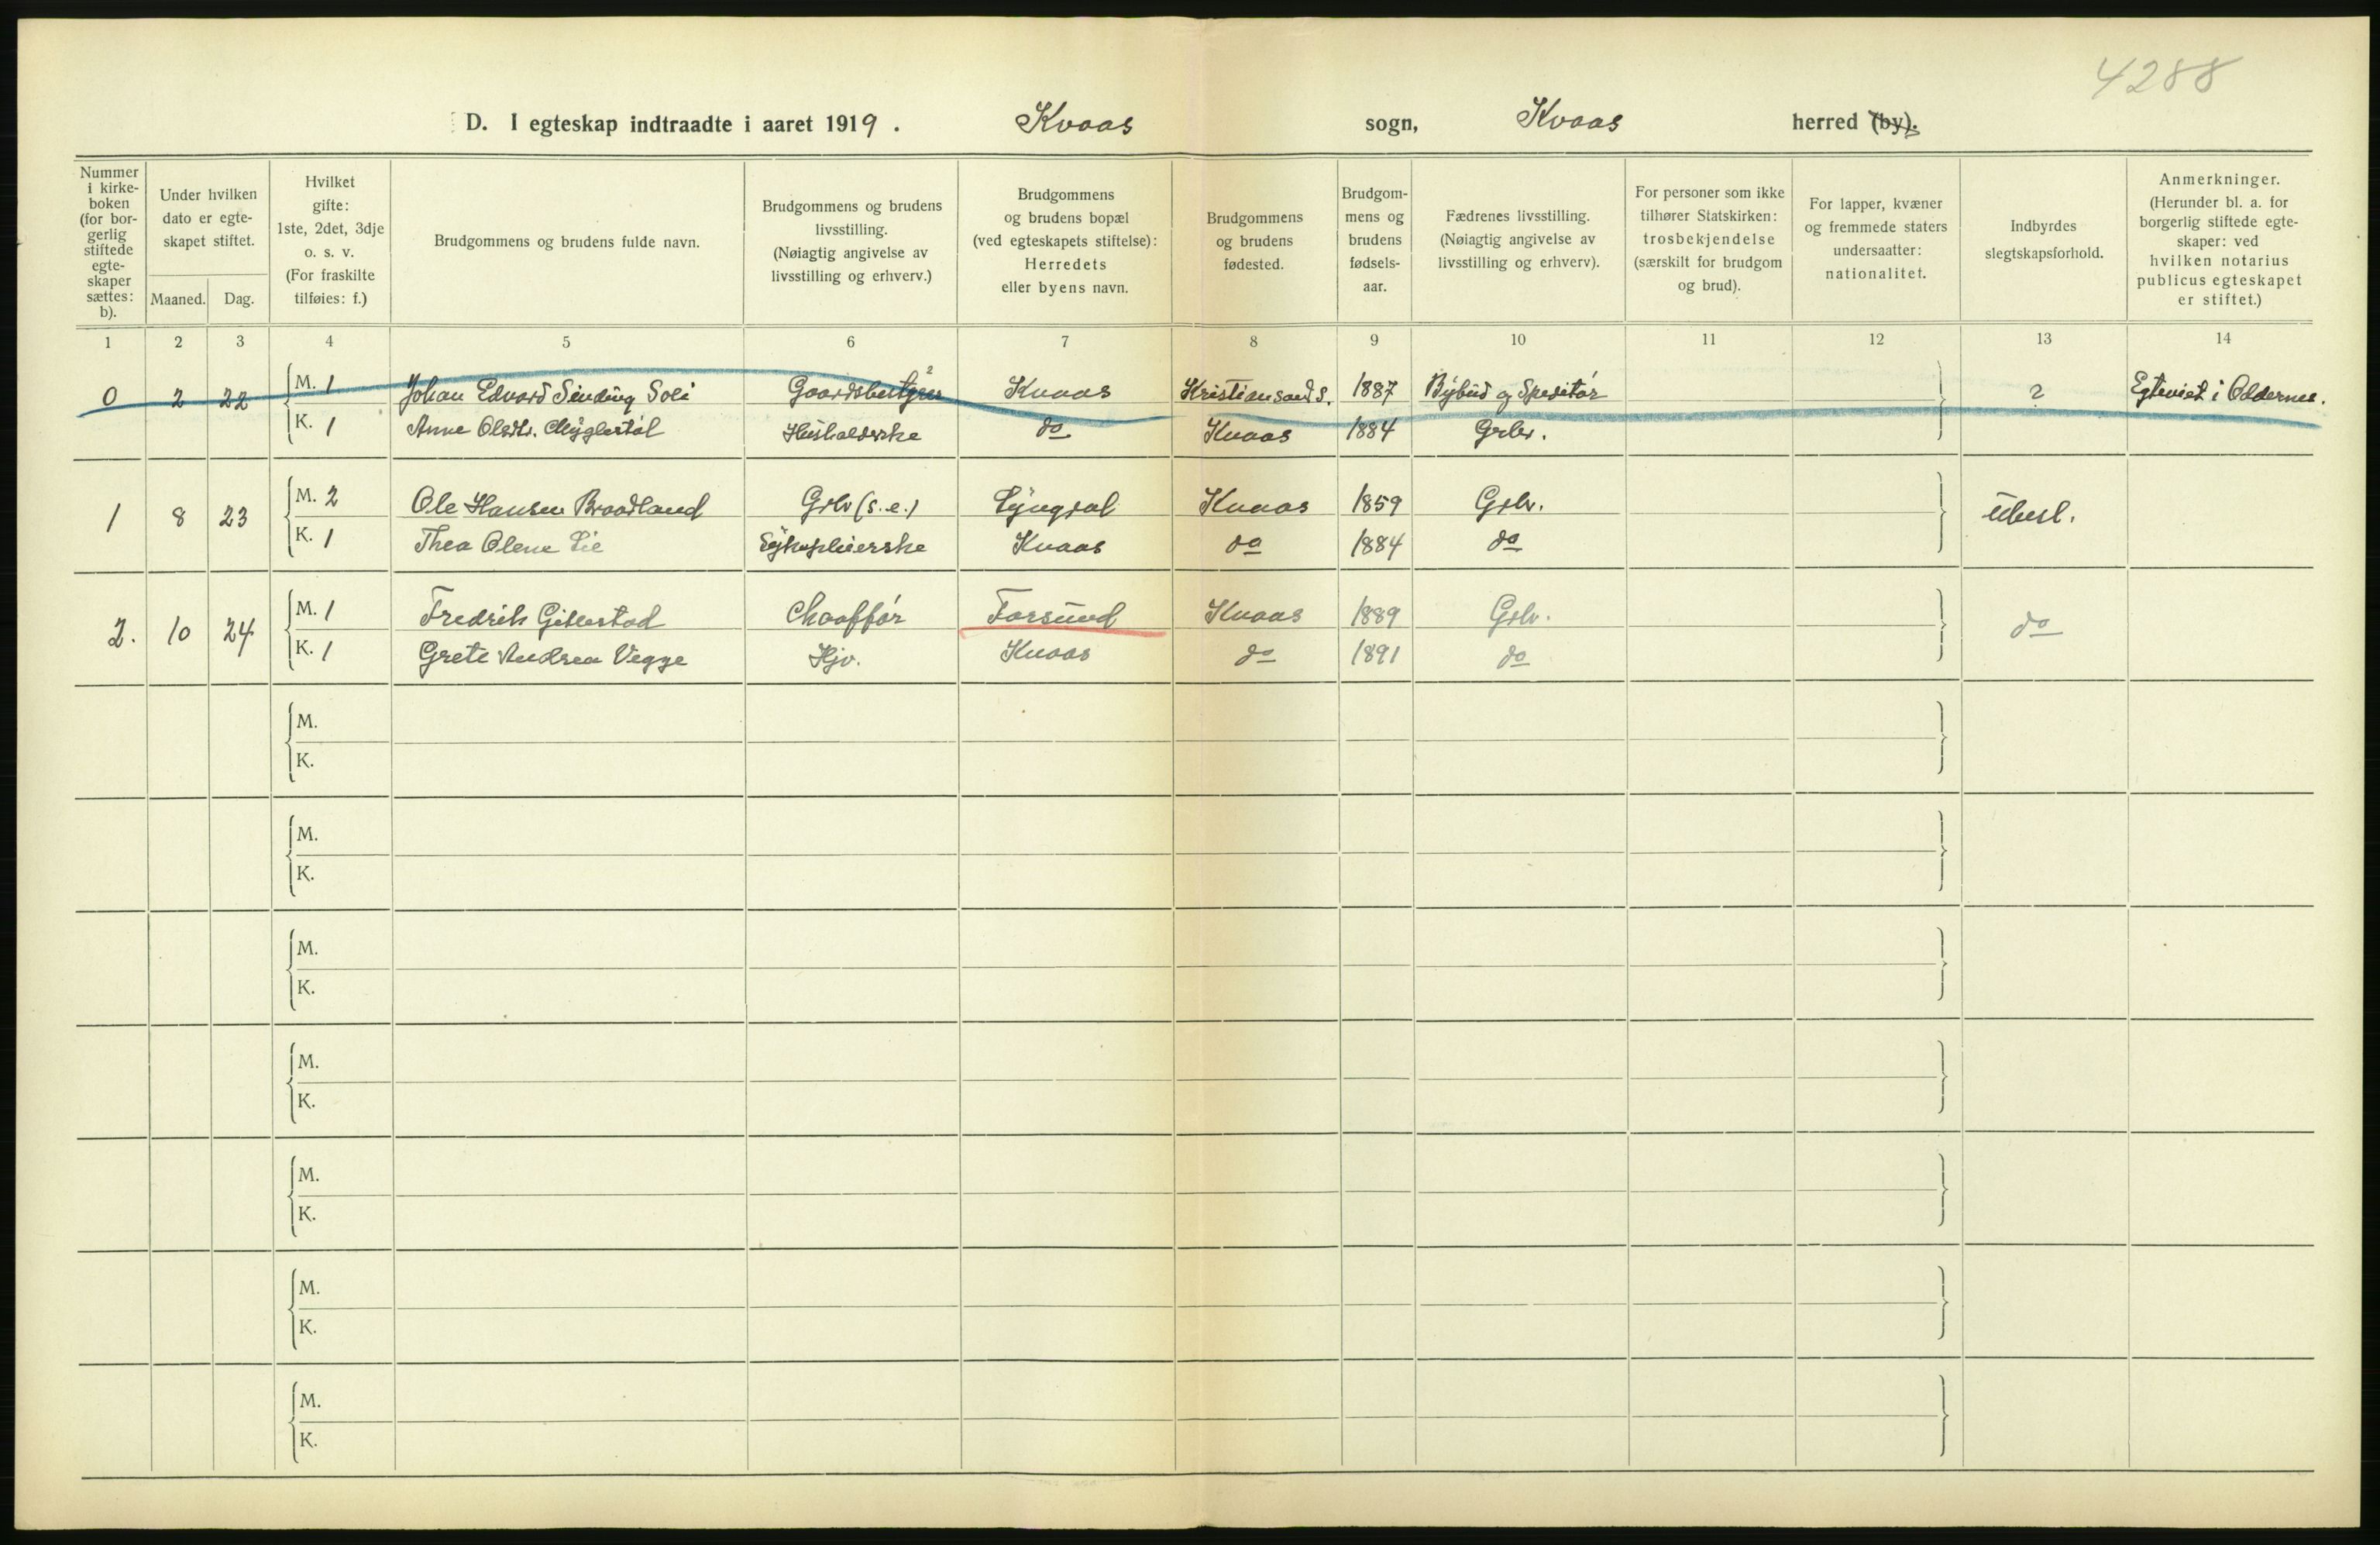 4288
D. I egteskap indtraadte i aaret 1919. Kvaas sogn, Kvaas herred (by).
Nummer i kirke-boken (for bor-gerlig stiftede egte-skaper sættes: b).
Under hvilken dato er egte-skapet stiftet.
Maaned. Dag.
Hvilket gifte: 1ste, 2det, 3dje o. s. v. (For fraskilte tilføies: f.)
Brudgommens og brudens fulde navn.
Brudgommens og brudens livsstilling. (Nøiagtig angivelse av livsstilling og erhverv.)
Brudgommens og brudens bopæl (ved egteskapets stiftelse): Herredets eller byens navn.
Brudgommens og brudens fødested.
Brudgom-mens og brudens fødsels-aar.
Fædrenes livsstilling. (Nøiagtig angivelse av livsstilling og erhverv).
For personer som ikke tilhører Statskirken: trosbekjendelse (særskilt for brudgom og brud).
For lapper, kvæner og fremmede staters undersaatter: nationalitet.
Indbyrdes slegtskapsforhold.
Anmerkninger. (Herunder bl. a. for borgerlig stiftede egte-skaper: ved hvilken notarius publicus egteskapet er stiftet.)
1 2 3 4 5 6 7 8 9 10 11 12 13 14
0 2 22 M. 1 Johan Edvard Sinding Soli Kvaas Kristiansand S. 1887 Bybud og Speditør ? Egteviet i Oddernes.
K. 1 Anne Olsdtr. Husholderske do Kvaas 1884 Grbr.
1 8 23 M. 2 Ole Hansen Braadland Grbr (s.e.) Lyngdal Kvaas 1859 Grbr. ubesl.
K. 1 Thea Olene Lie Sykepleierske Kvaas do 1884 do
2. 10 24 M. 1 Fredrik Gitlestad Chaoffør Farsund Kvaas 1889 Grbr. do
K. 1 Grete Andrea Vegge Hjv. Kvaas do 1891 do
M.
K.
M.
K.
M.
K.
M.
K.
M.
K.
M.
K.
M.
K.